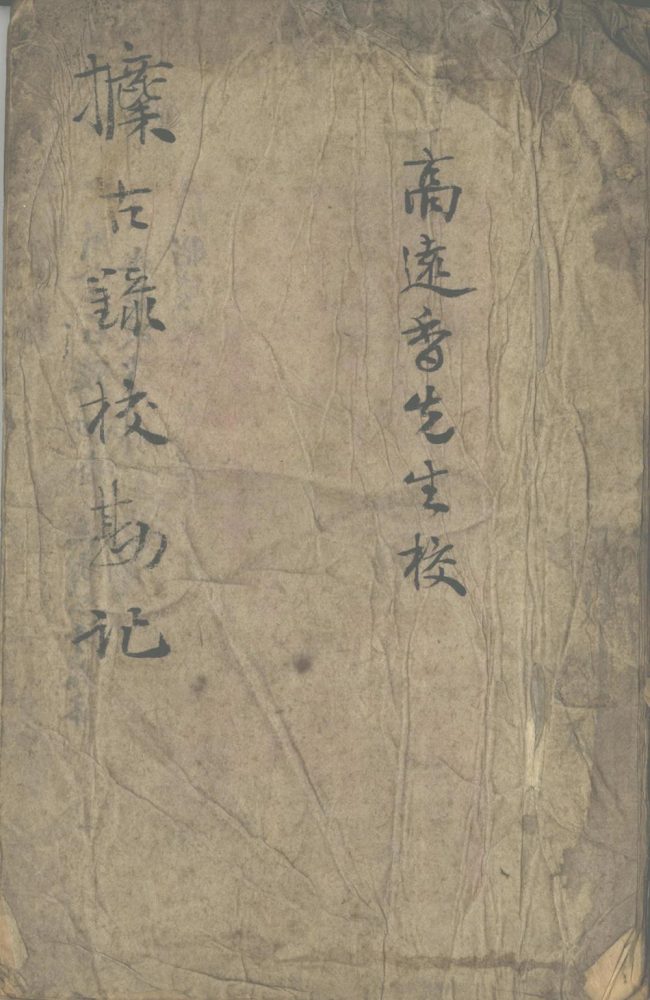 高遠香先生校
攈古録校勘記